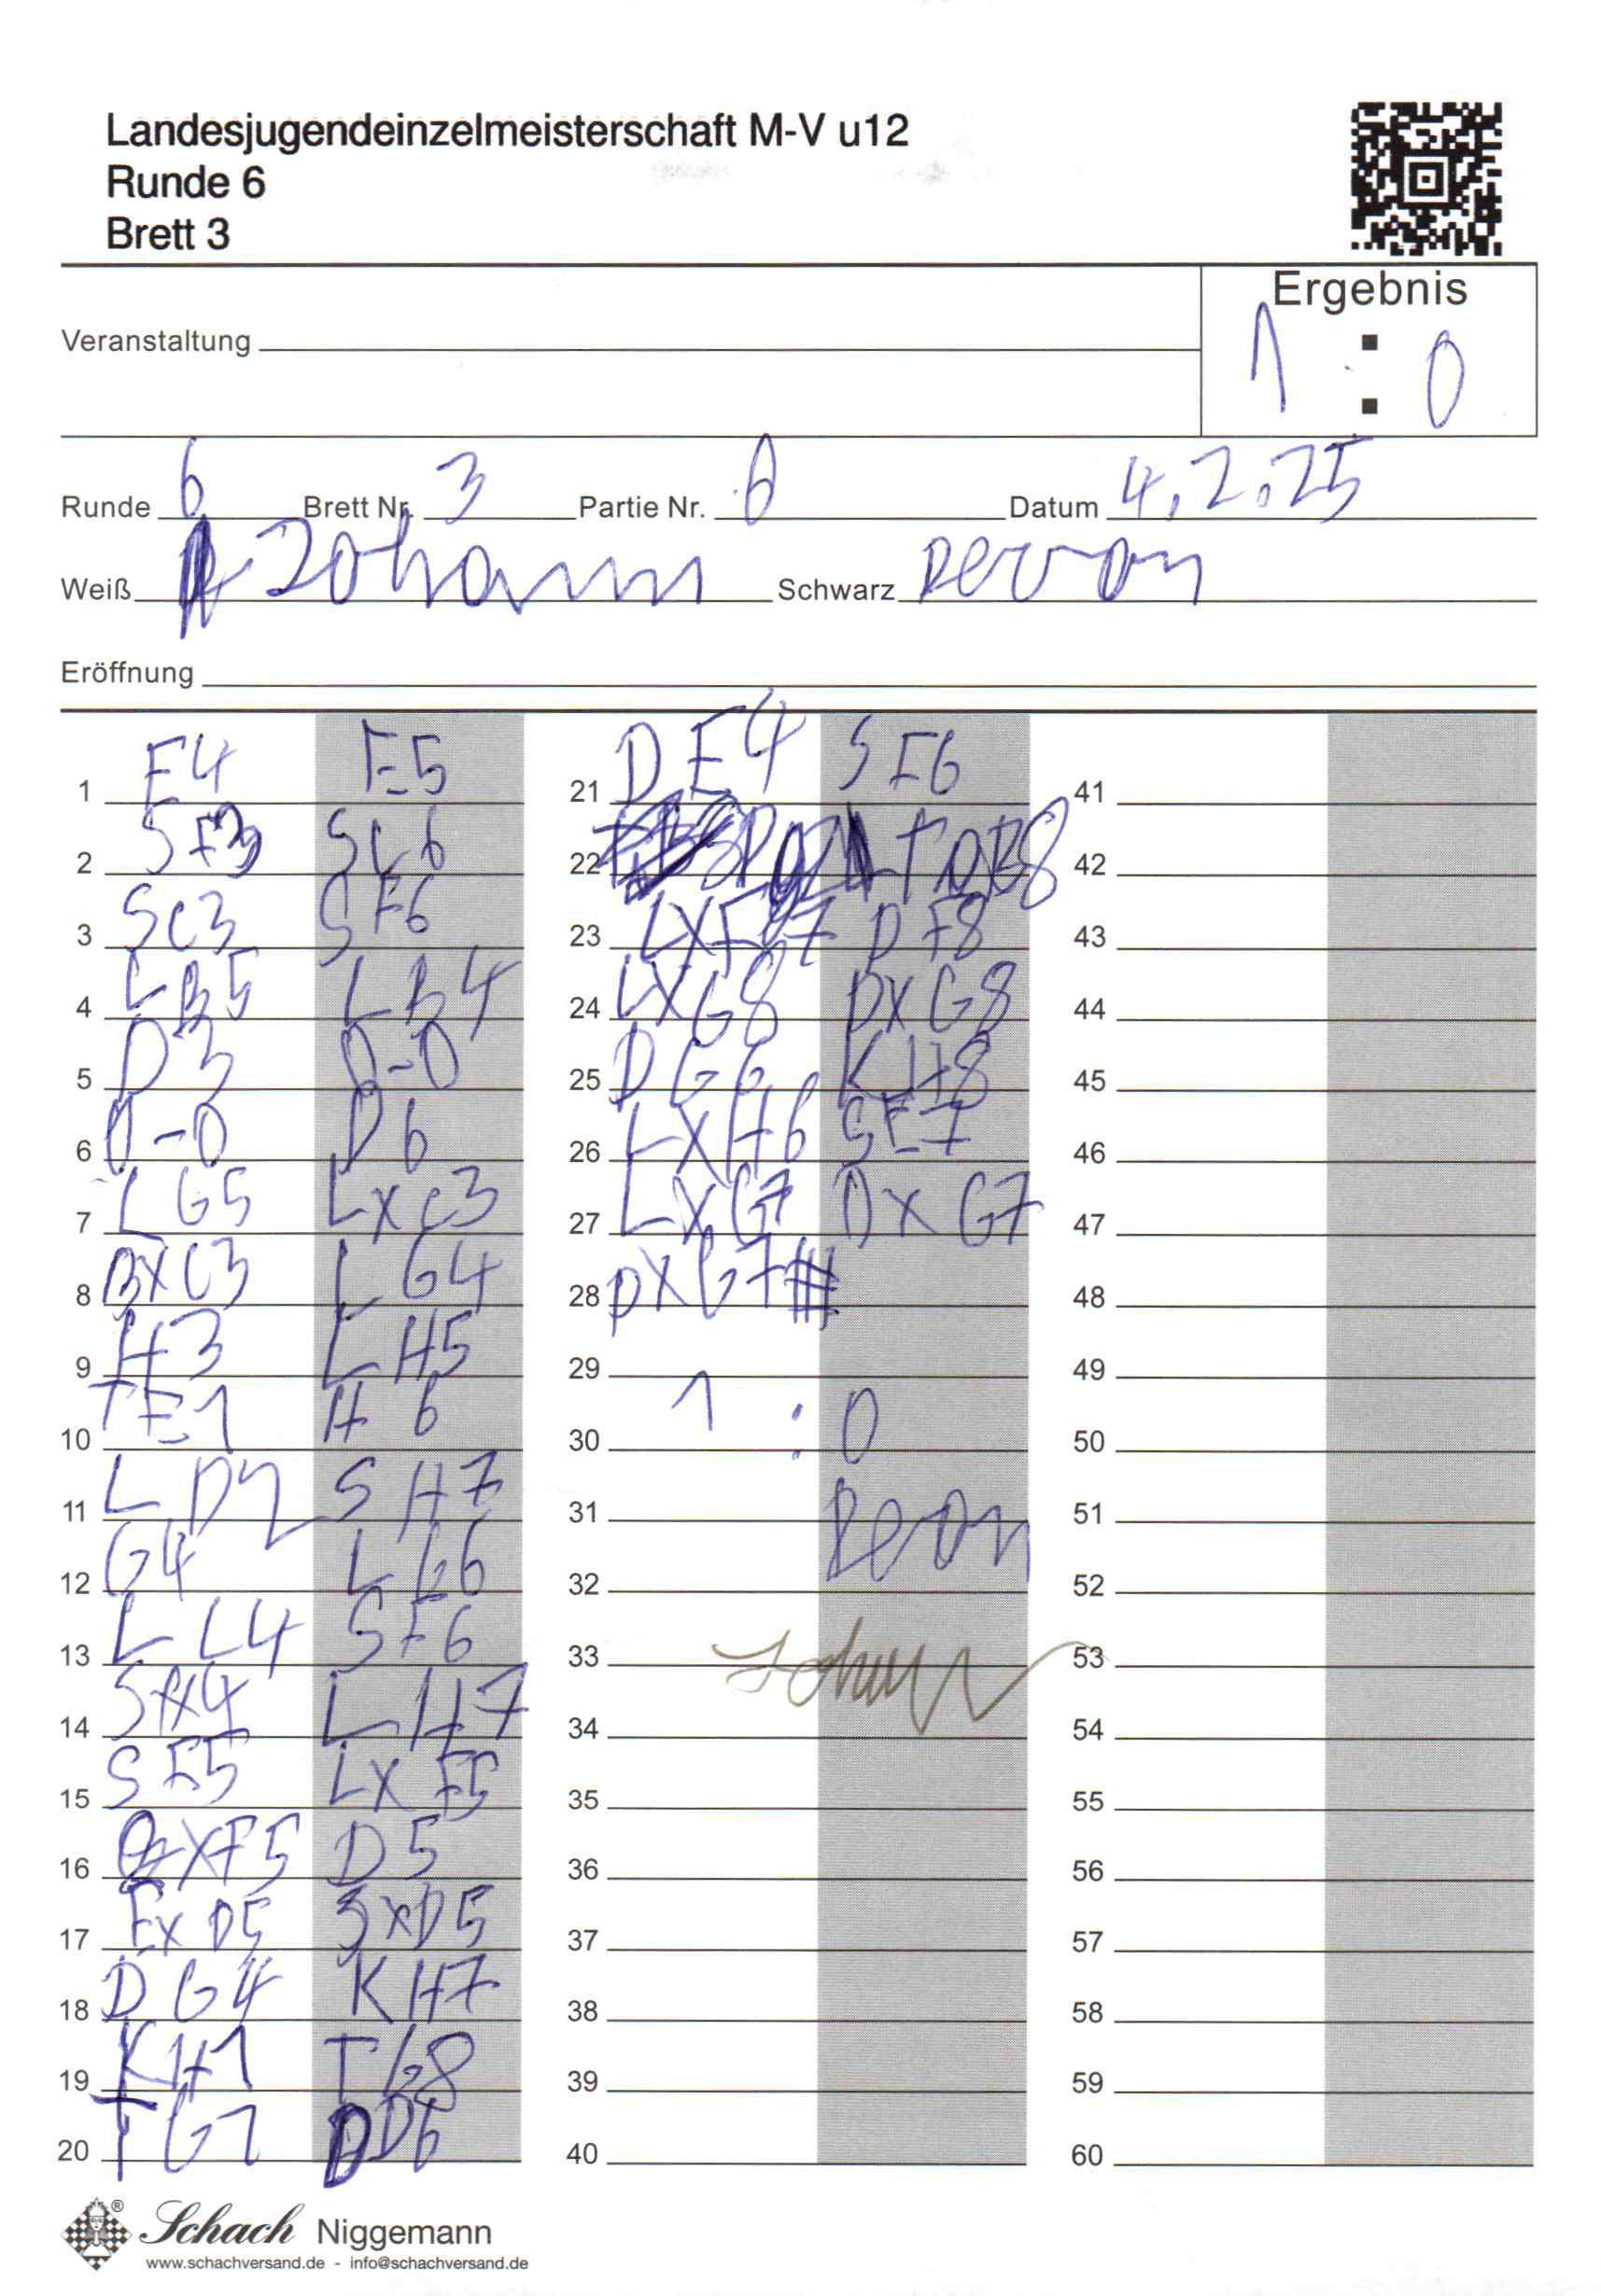 Landesjugendeinzelmeisterschaft M-V u12
Runde 6
Brett 3
Ergebnis
1 : 0
Veranstaltung
Runde 6 Brett Nr. 3 Partie Nr. 6 Datum 4.2.25
Weiß Johann Schwarz
Eröffnung
1 E4 E5 21 DE4 SF6 41
2 SF3 SC6 22 42
3 SC3 SF6 23 LXF7 DF8 43
4 LB5 LB4 24 LXG8 DXG8 44
5 D3 0-0 25 DG6 KH8 45
6 0-0 D6 26 LXH6 SE7 46
7 LG5 LXC3 27 LXG7 DXG7 47
8 BXC3 LG4 28 DXG7# 48
9 H3 LH5 29 49
10 TE1 H6 30 1 : 0 50
11 LD2 SH7 31 51
12 G4 LG6 32 52
13 LC4 SF6 33 53
14 SH4 LH7 34 54
15 SF5 LXF5 35 55
16 XF5 D5 36 56
17 EXD5 SXD5 37 57
18 DG4 KH7 38 58
19 KH1 TG8 39 59
20 TG1 DD6 40 60
Schach Niggemann
®
www.schachversand.de - info@schachversand.de